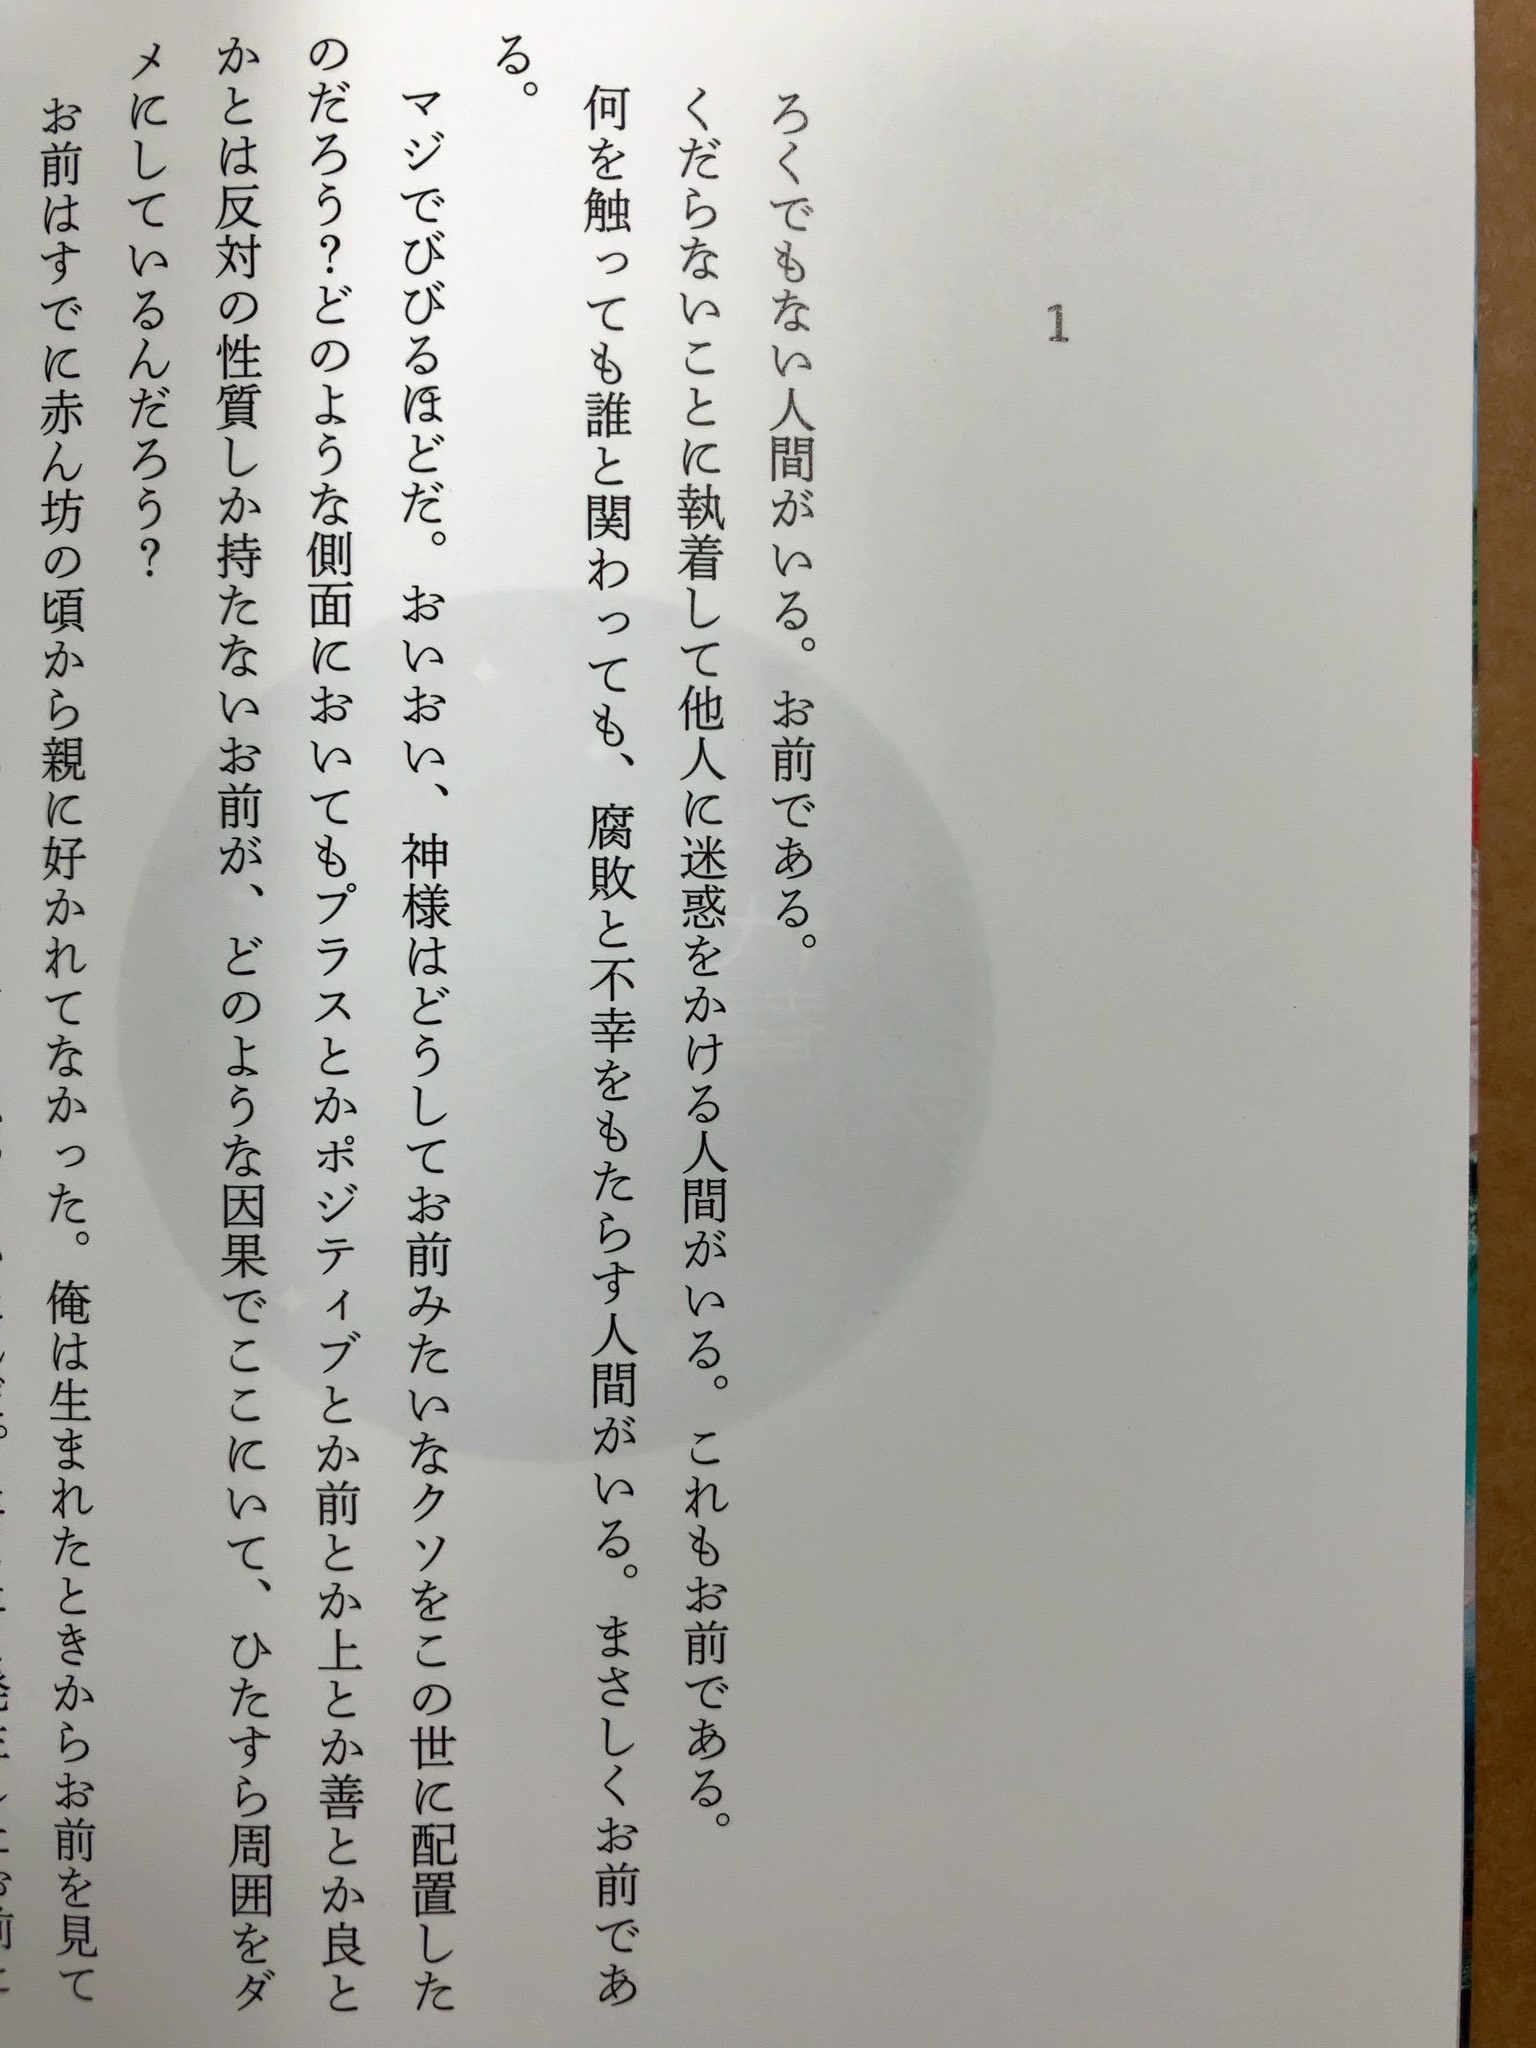 1
ろくでもない人間がいる。お前である。
くだらないことに執着して他人に迷惑をかける人間がいる。これもお前である。
何を触っても誰と関わっても、腐敗と不幸をもたらす人間がいる。まさしくお前であ
る。
マジでびびるほどだ。おいおい、神様はどうしてお前みたいなクソをこの世に配置した
のだろう？どのような側面においてもプラスとかポジティブとか前とか上とか善とか良と
かとは反対の性質しか持たないお前が、どのような因果でここにいて、ひたすら周囲をダ
メにしているんだろう？
お前はすでに赤ん坊の頃から親に好かれてなかった。俺は生まれたときからお前を見て